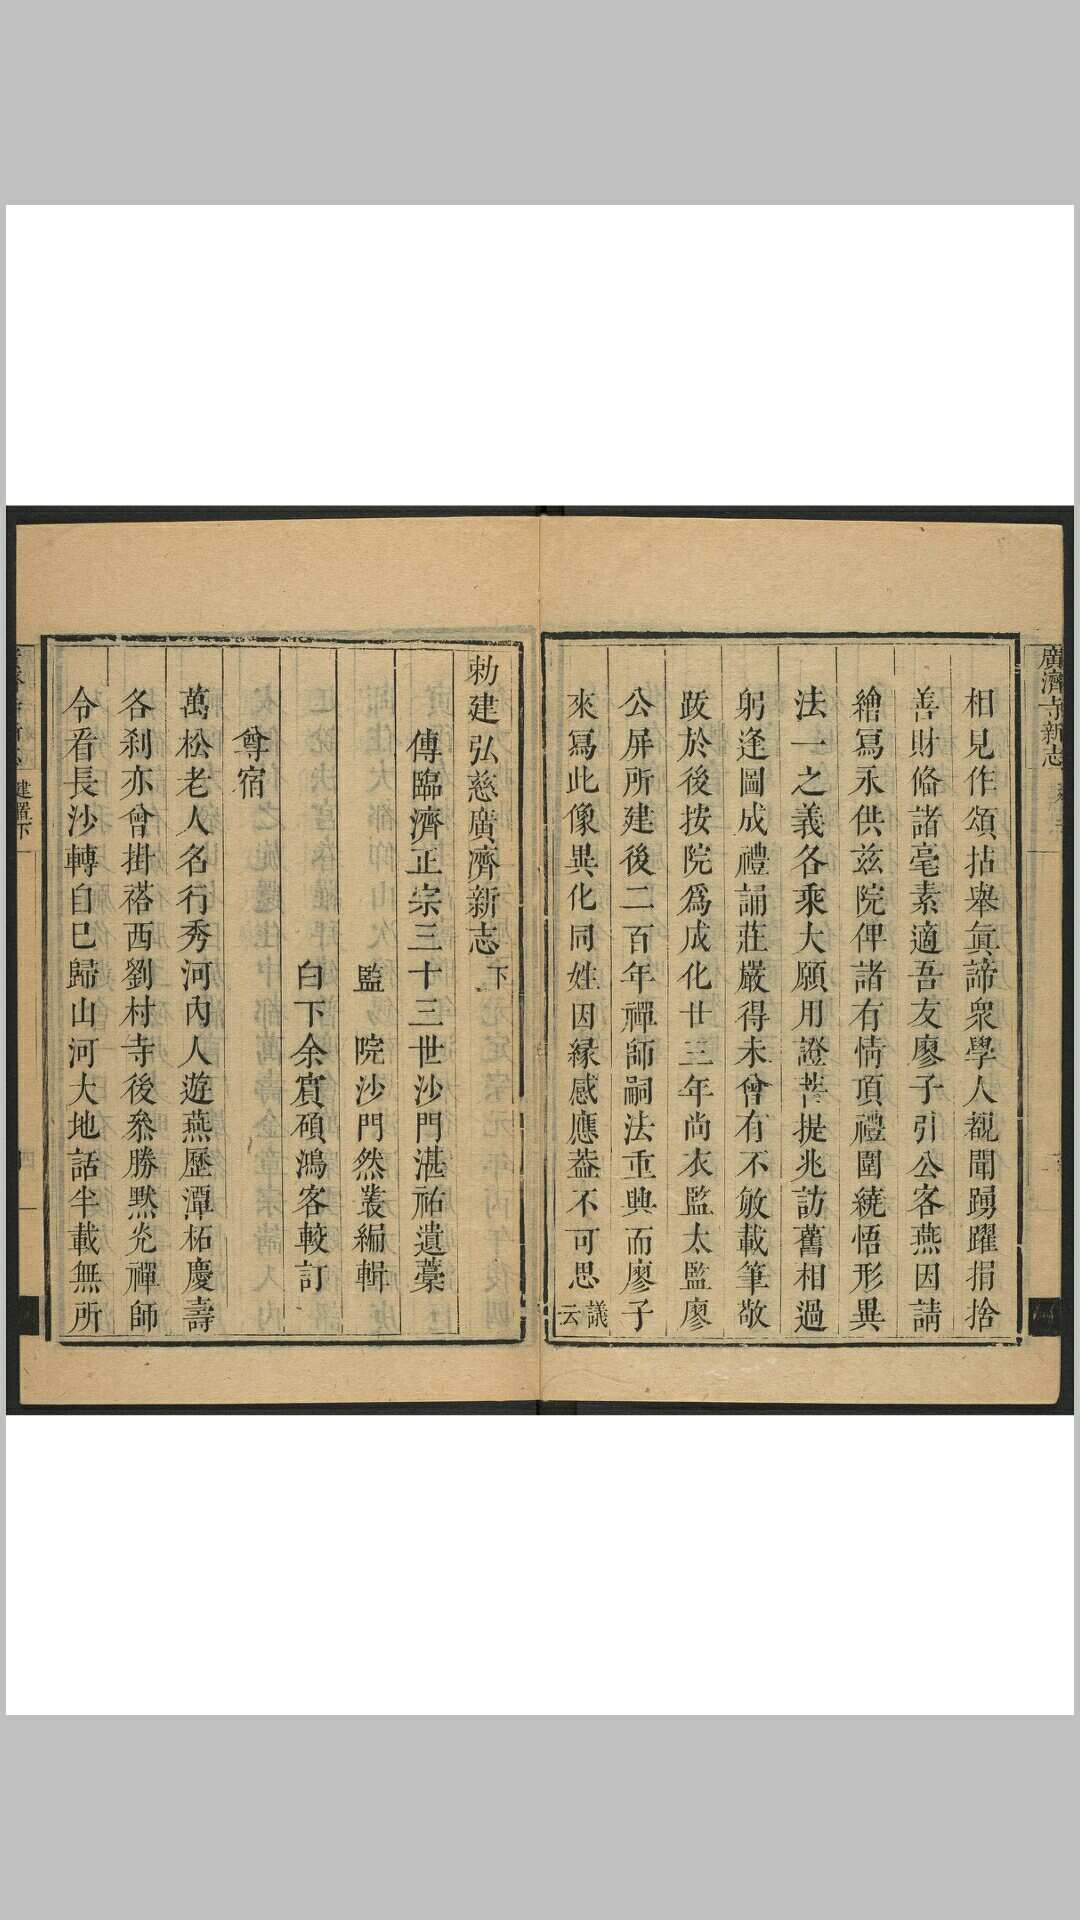 廣濟寺新志
相見作頌拈舉眞諦衆學人觀聞踴躍捐捨
善財脩諸毫素適吾友廖子引公客燕因請
繪冩永供兹院俾諸有情頂禮圍繞悟形異
法一之義各乘大願用證菩提兆訪舊相過
躬逢圖成禮誦莊嚴得未曾有不敏載筆敬
跋於後按院爲成化廿三年尚衣監太監廖
公屏所建後二百年禪師嗣法重興而廖子
來冩此像異化同姓因緣感應葢不可思議云
勅建弘慈廣濟新志下
傳臨濟正宗三十三世沙門湛祐遺藁
監院沙門然叢編輯
白下余賓碩鴻客較訂
尊宿
萬松老人名行秀河內人遊燕歷潭柘慶壽
各刹亦曾掛褡西劉村寺後叅勝黙光禪師
令看長沙轉自巳歸山河大地話半載無所
建置下